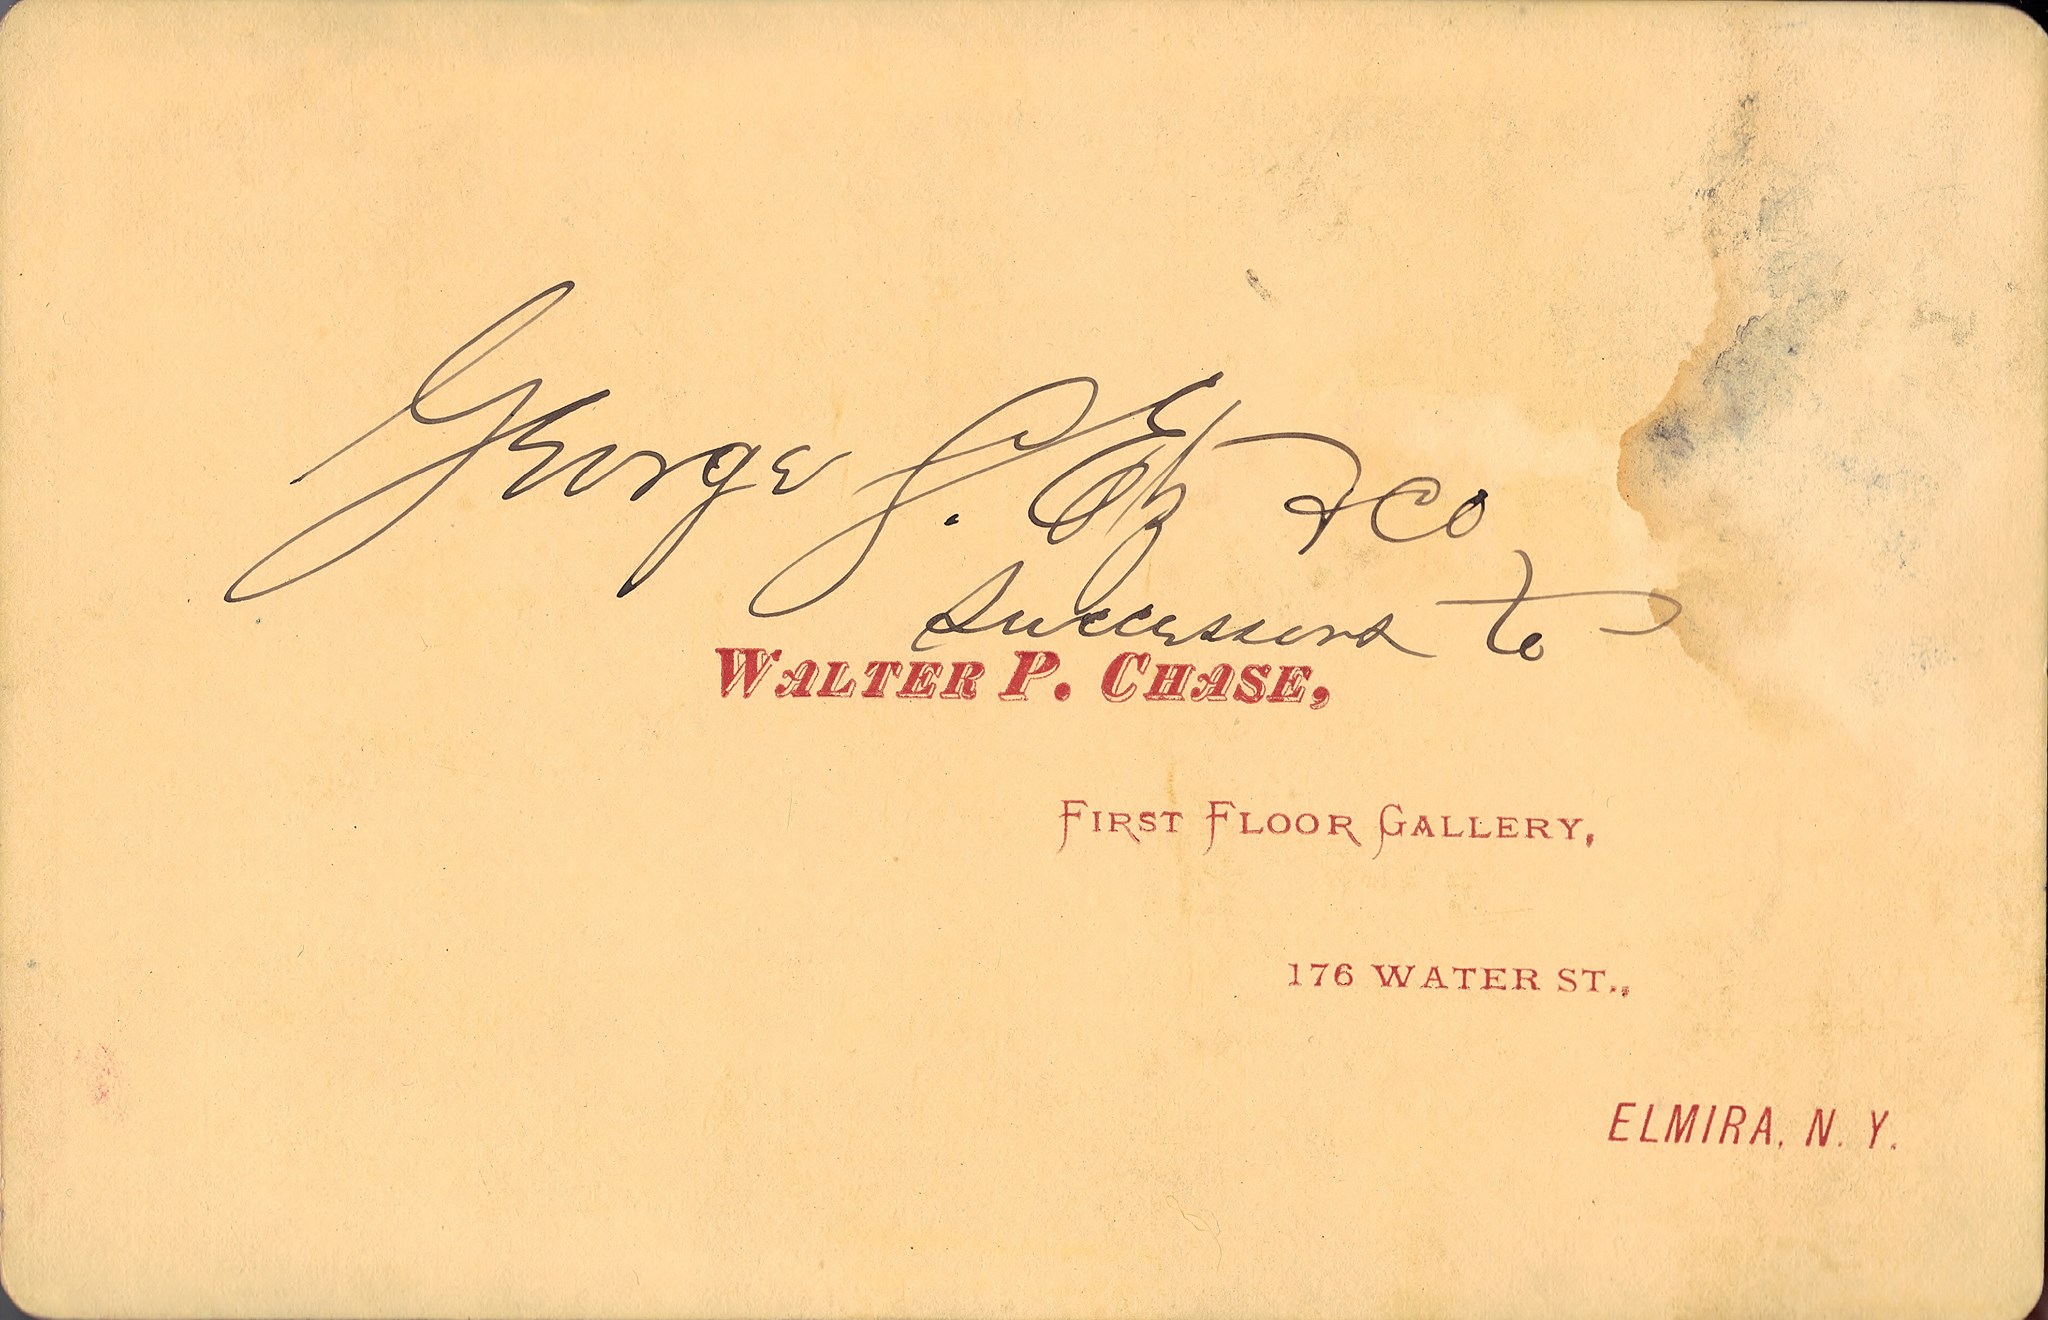 George &co
Successors to
WALTER P. CHASE,
FIRST FLOOR GALLERY,
176 WATER ST.,
ELMIRA, N. Y.